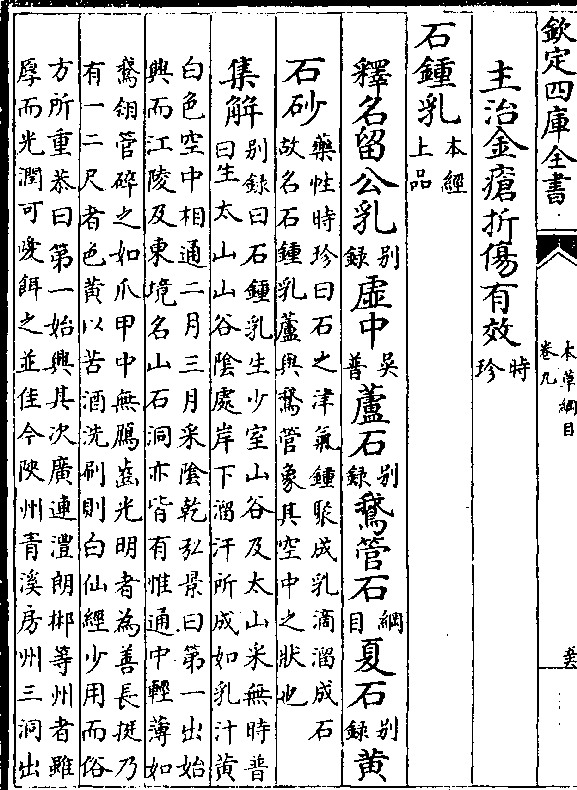 欽定四庫全書
本草綱目
卷九
主治金瘡折傷有效時珍
石鍾乳本經上品
釋名留公乳别錄虛中吳普蘆石别錄鵞管石綱目夏石别錄黄
石砂藥性時珍曰石之津氣鍾聚成乳滴溜成石
故名石鍾乳蘆與鵞管象其空中之狀也
集解别錄曰石鍾乳生少室山谷及太山采無時普
曰生太山山谷隂處岸下溜汗所成如乳汁黄
白色空中相通二月三月采隂乾弘景曰第一出始
興而江陵及東境名山石洞亦皆有惟通中輕薄如
鵞翎管碎之如爪甲中無鴈齒光明者為善長挺乃
有一二尺者色黄以苦酒洗刷則白仙經少用而俗
方所重恭曰第一始興其次廣連澧朗郴等州者雖
厚而光潤可愛餌之並佳今陜州青溪房州三洞出